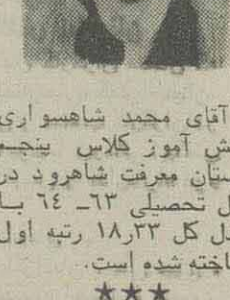 آقای محمد شاهسواری
ش آموز کلاس پنجم
ستان معرفت شاهرود در
ل تحصیلی ۶۳ـ ۶۴ با
دل کل ۱۸٫۳۳ رتبه اول
اخته شده است.